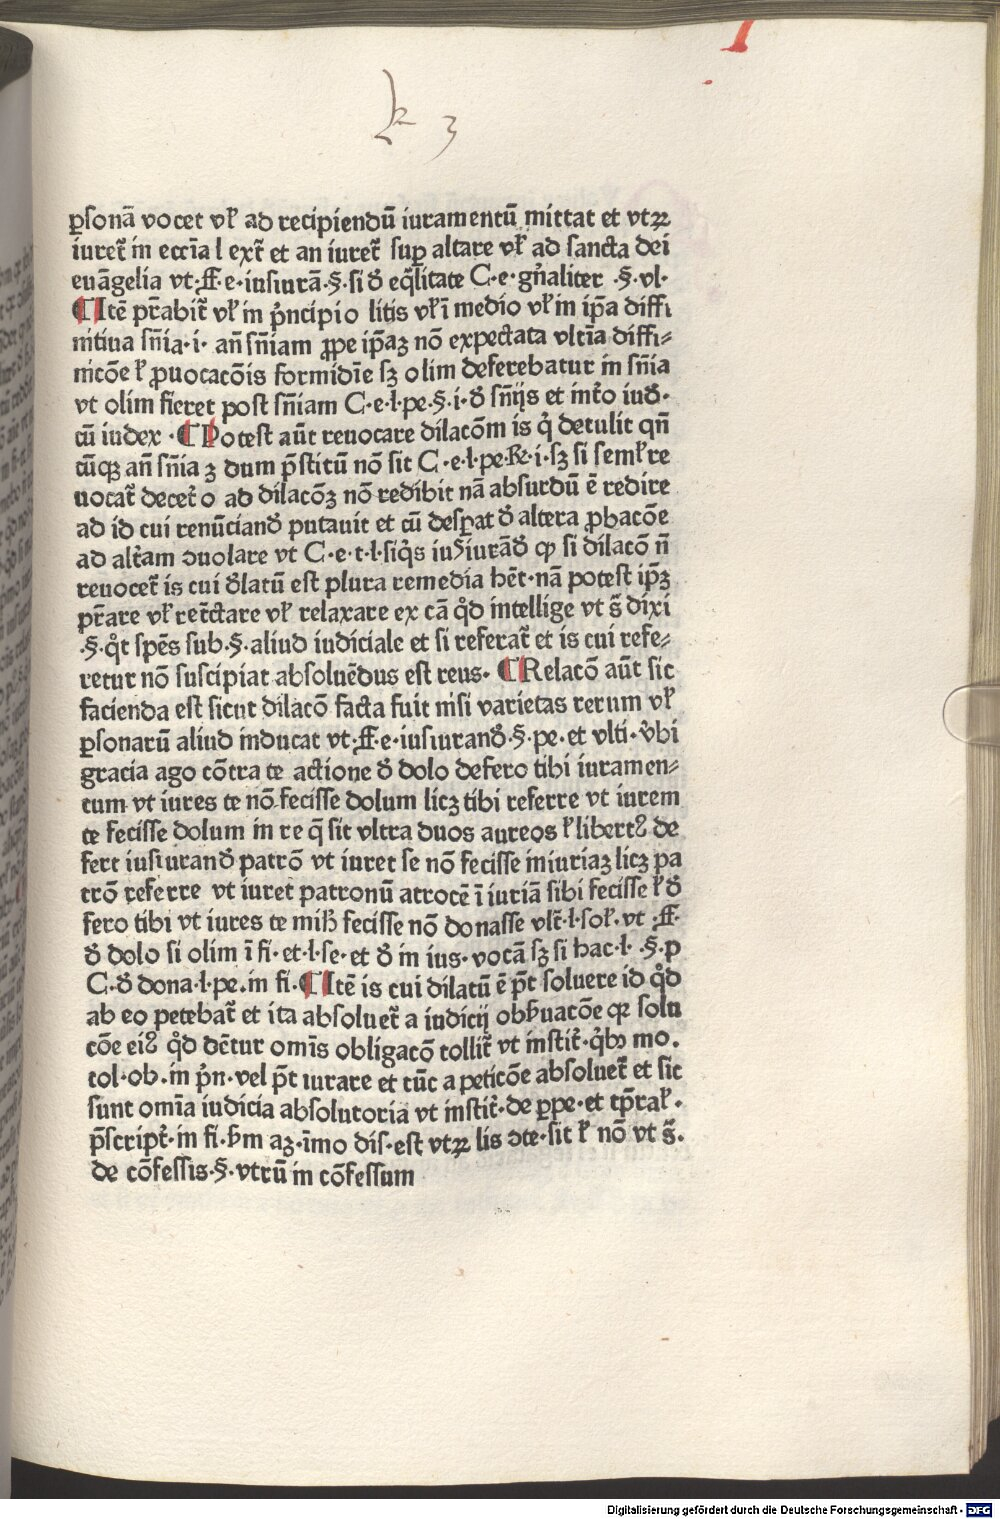 k 3
ꝑsonā vocet vł ad recipiendū iuramentū mittat et vtꝝ
iuret᷑ in eccīa l ext᷑ et an iuret᷑ suꝑ altare vł ad sancta dei
euāgelia vt·ff·e·iusiurā·§·si ð eq̄litate C·e·gn̄aliter ·§·vl·
¶Itē pr̄abit᷑ vł in pͥncipio litis vł ī medio vł in ip̄a diffi
nitiua sn̄ia·i· an̄ sn̄iam ꝓpe ip̄aꝫ nō expectata vltīa diffi⸗
nicōe ł ꝓuocacōis formidīe sꝫ olim deferebatur in sn̄ia
vt olim fieret post sn̄iam C·e·l·pe·§·i·ð sn̄ijs et int᷑o iuð·
cū iudex ·¶Potest aūt reuocare dilacōm is qͥ detulit qn̄
cūqꝫ an̄ sn̄ia ꝫ dum p̄stitū nō sit C·e·l·pe·R̄·i·sꝫ si semł re
uocat᷑ decet᷑o ad dilacōꝫ nō redibit nā absurdū ē redire
ad id cui renūcianð putauit et cū desꝑat ð altera ꝓbacōe
ad alt᷑am ↄuolare vt C·e·t·l·siqͥs iusiurāð ꝙ si dilacō n̄
reuocet᷑ is cui ðlatū est plura remedia hēt·nā potest ip̄ꝫ
pr̄are vł ret᷑ctare vł relaxare ex cā qͦd intellige vt s̄ dixi
·§·qͦt spēs sub·§·aliud iudiciale et si referat᷑ et is cui refe⸗
retur nō suscipiat absoluēdus est reus· ¶Relacō aūt sic
facienda est sicut dilacō facta fuit nisi varietas rerum vł
ꝑsonarū aliud inducat vt·ff·e·iusiuranð·§·pe·et vlti·v̓bi
gracia ago cōtra te actione ð dolo defero tibi iuramen⸗
tum vt iures te nō fecisse dolum licꝫ tibi referre vt iurem
te fecisse dolum in re q̄ sit vltra duos aureos ł libertꝰ de
fert iusiuranð patrō vt iuret se nō fecisse iniuriaꝫ licꝫ pa
trō referre vt iuret patronū atrocē īiuriā sibi fecisse ł ð
fero tibi vt iures te mihi fecisse nō donasse vlt᷑·l·soł·vt ·ff·
ð dolo si olim ī fi·et·l·se·et ð in ius·vocā sꝫ si hac·l· ·§·p
C·ð dona·l·pe·in fi·¶Itē is cui dilatū ē pt̄ soluere id qͦd
ab eo petebat᷑ et ita absoluet᷑ a iudicij obẜuacōe qꝛ solu
cōe eiꝰ qͦd dētur omīs obligacō tollit᷑ vt instit᷑·qͥbꝫ mo·
tol·ob·in pͥn·vel pt̄ iurare et tūc a peticōe absoluet᷑ et sic
sunt omīa iudicia absolutoria vt instit᷑·de ꝑpe·et tp̄rał·
p̄script᷑·in fi·ẜm aꝫ·īmo dis·est vtꝝ lis ↄte·sit ł nō vt s̄·
de cōfessis·§·vtrū in cōfessum
Digitalisierung gefördert durch die Deutsche Forschungsgemeinschaft - DFG